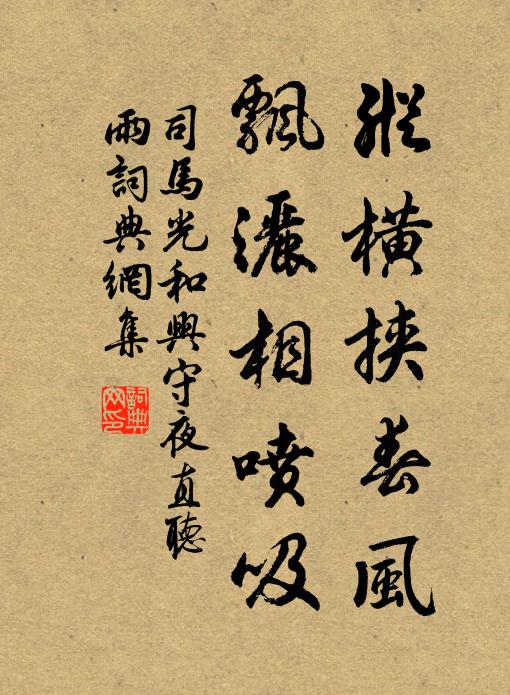 縱橫挾春風
飄灑相噴吸
司馬光和興守夜直聽
雨詞典網集
詞典
网印